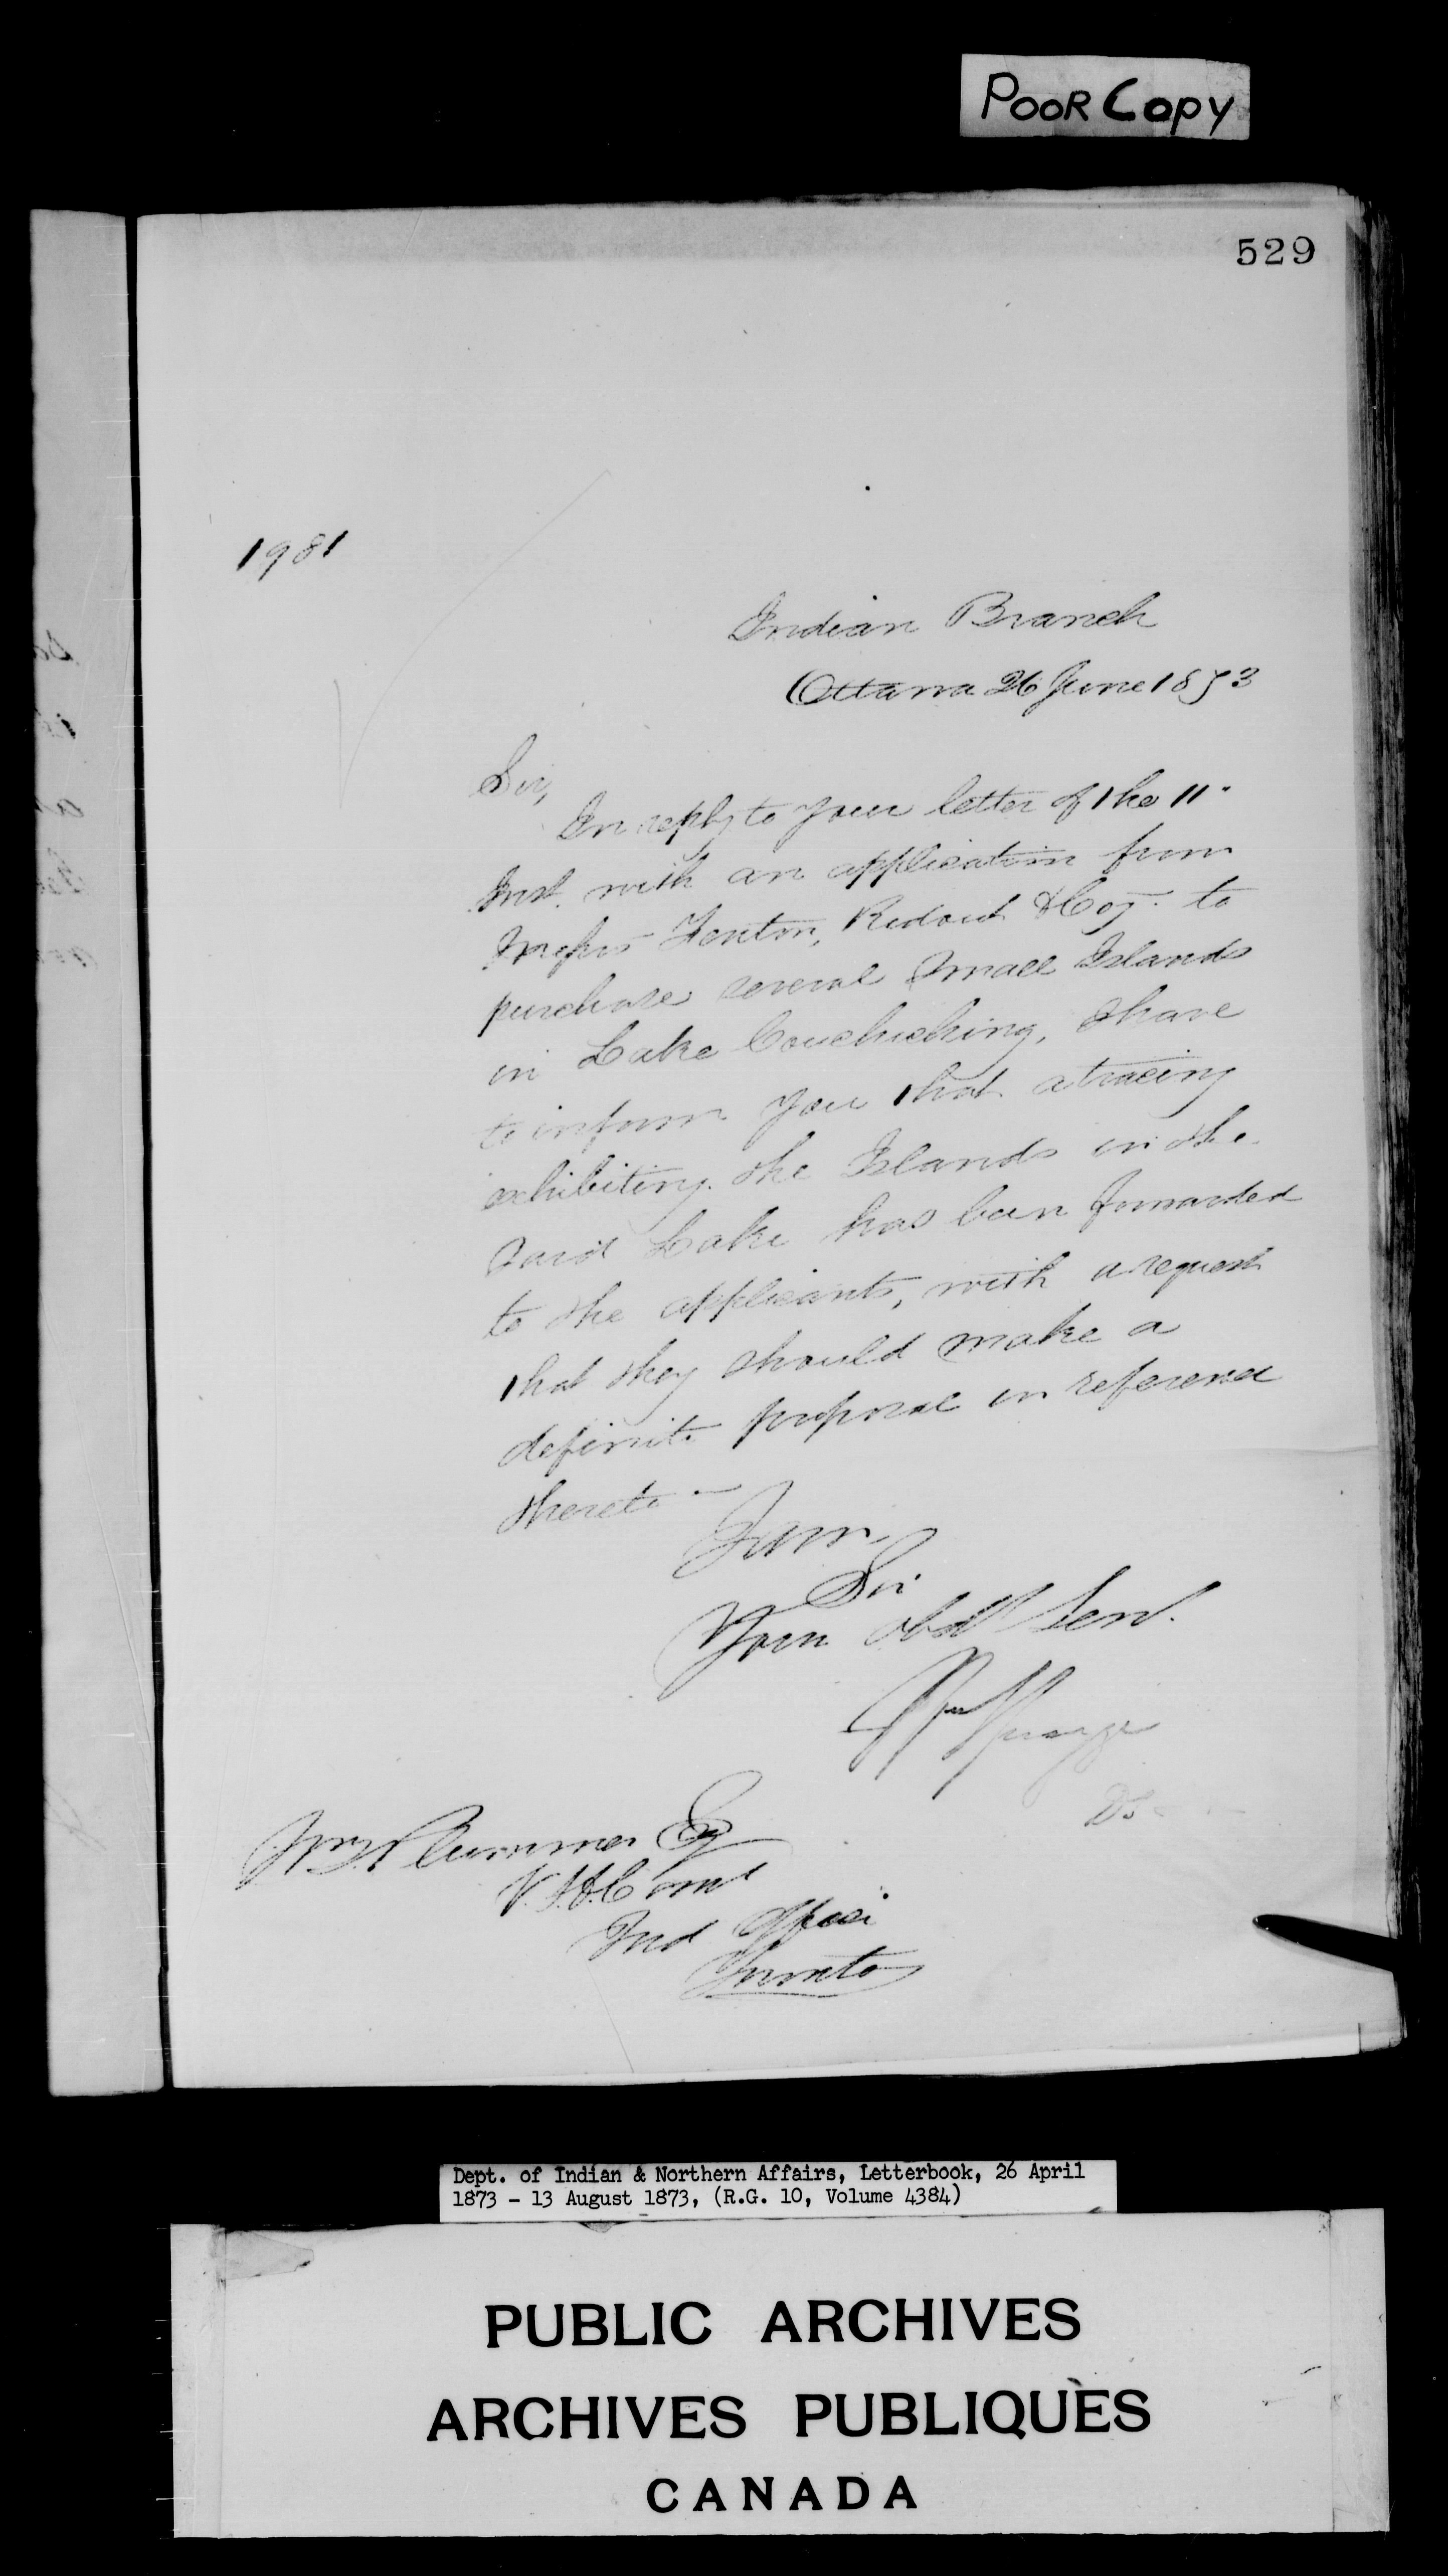 POOR COPY
529
1981
Indian Branch
Ottawa 26 June 1873
Sir,
In reply to your letter of the 11"
Inst. with an application from
Messrs Fenton, Ridout & Coy. to
purchase several small Islands
in Lake Couchiching, I have
to inform you that a tracing
exhibiting the Islands in the
said Lake has been forwarded
to the applicants, with a request
that they should make a
definite proposal in reference
thereto —
I am,
Sir
Your obdt Servt.
Wm Spragge
Wm Plummer Esq
V.S.&Comr
Ind Office
Toronto
Dept. of Indian & Northern Affairs, Letterbook, 26 April
1873 - 13 August 1873, (R.G. 10, Volume 4384)
PUBLIC ARCHIVES
ARCHIVES PUBLIQUES
CANADA